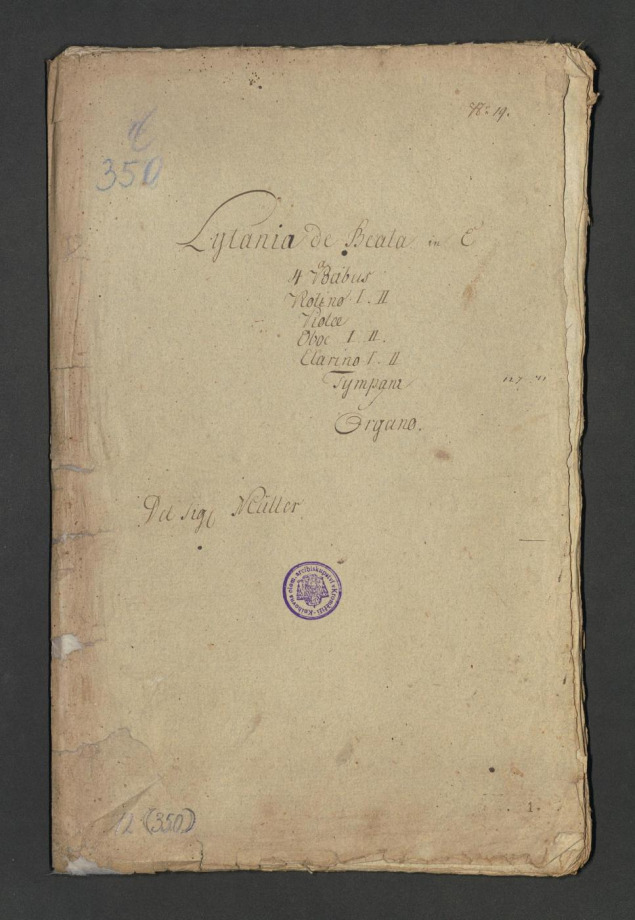 No 19.
350
Lytania de Beata in C
a
4 Vocibus
Violino I. II
Violæ
Oboe I II.
Clarino I. II
Tympani
Organo.
Del Sig Müller
1.
(350)